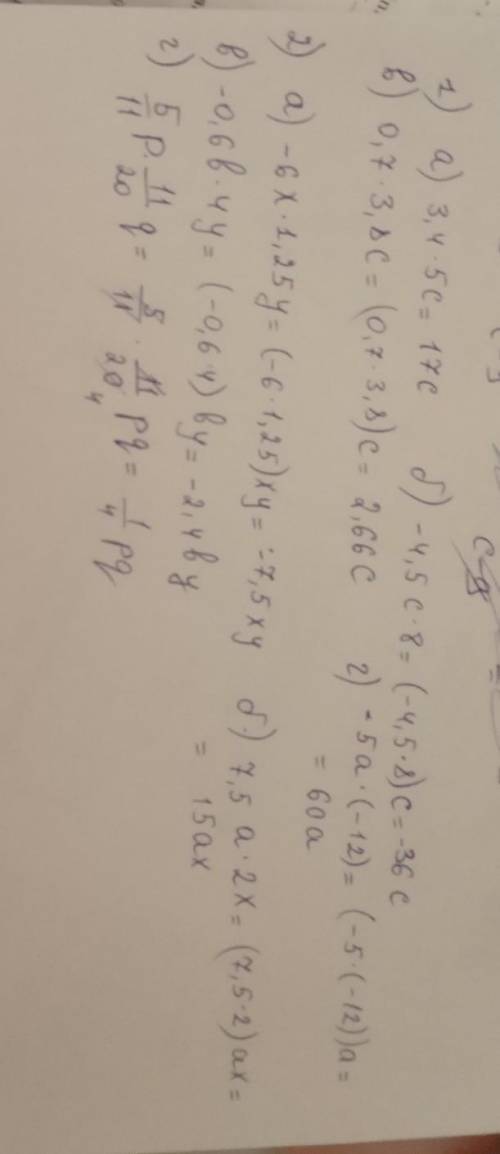 1) а) 3,4·5c = 17c б) -4,5c·8 = (-4,5·8)c = -36c
в) 0,7·3,8c = (0,7·3,8)c = 2,66c г) -5a·(-12) = (-5·(-12))a =
= 60a
2) а) -6x·1,25y = (-6·1,25)xy = -7,5xy б) 7,5a·2x = (7,5·2)ax =
= 15ax
в) -0,6b·4y = (-0,6·4)by = -2,4by
г) 5/11 p · 11/20 q = 5/11 · 11/20 pq = 1/4 pq
4